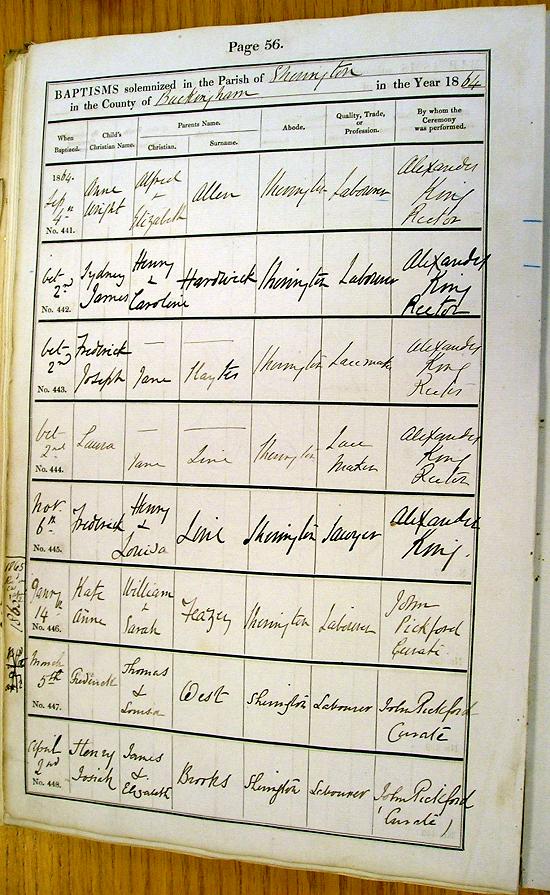 Page 56.
BAPTISMS solemnized in the Parish of Sherington
in the County of Buckingham in the Year 1864
When Baptized.
Child's Christian Name.
Parents Name.
Christian.
Surname.
Abode.
Quality, Trade, or Profession.
By whom the Ceremony was performed.
1864.
Sep. 4th
No. 441.
Anne Wright
Alfred & Elizabeth
Allen
Sherington
Labourer
Alexander King Rector
Oct 2nd
No. 442.
Sydney James
Henry & Caroline
Hardwick
Sherington
Labourer
Alexander King Rector
Oct 2nd
No. 443.
Frederick Joseph
— Jane
— Haytes
Sherington
Lacemaker
Alexander King Rector
Oct 2nd
No. 444.
Laura
— Jane
— Line
Sherington
Lace Maker
Alexander King Rector
Nov. 6th
No. 445.
Frederick
Henry & Louisa
Line
Sherington
Sawyer
Alexander King.
1865
Janry 14th
No. 446.
Kate Anne
William & Sarah
Feazey
Sherington
Labourer
John Pickford Curate
March 5th
No. 447.
Frederick
Thomas & Louisa
West
Sherington
Labourer
John Pickford Curate
April 2nd
No. 448.
Henry Josiah
James & Elizabeth
Brooks
Sherington
Labourer
John Pickford (Curate)